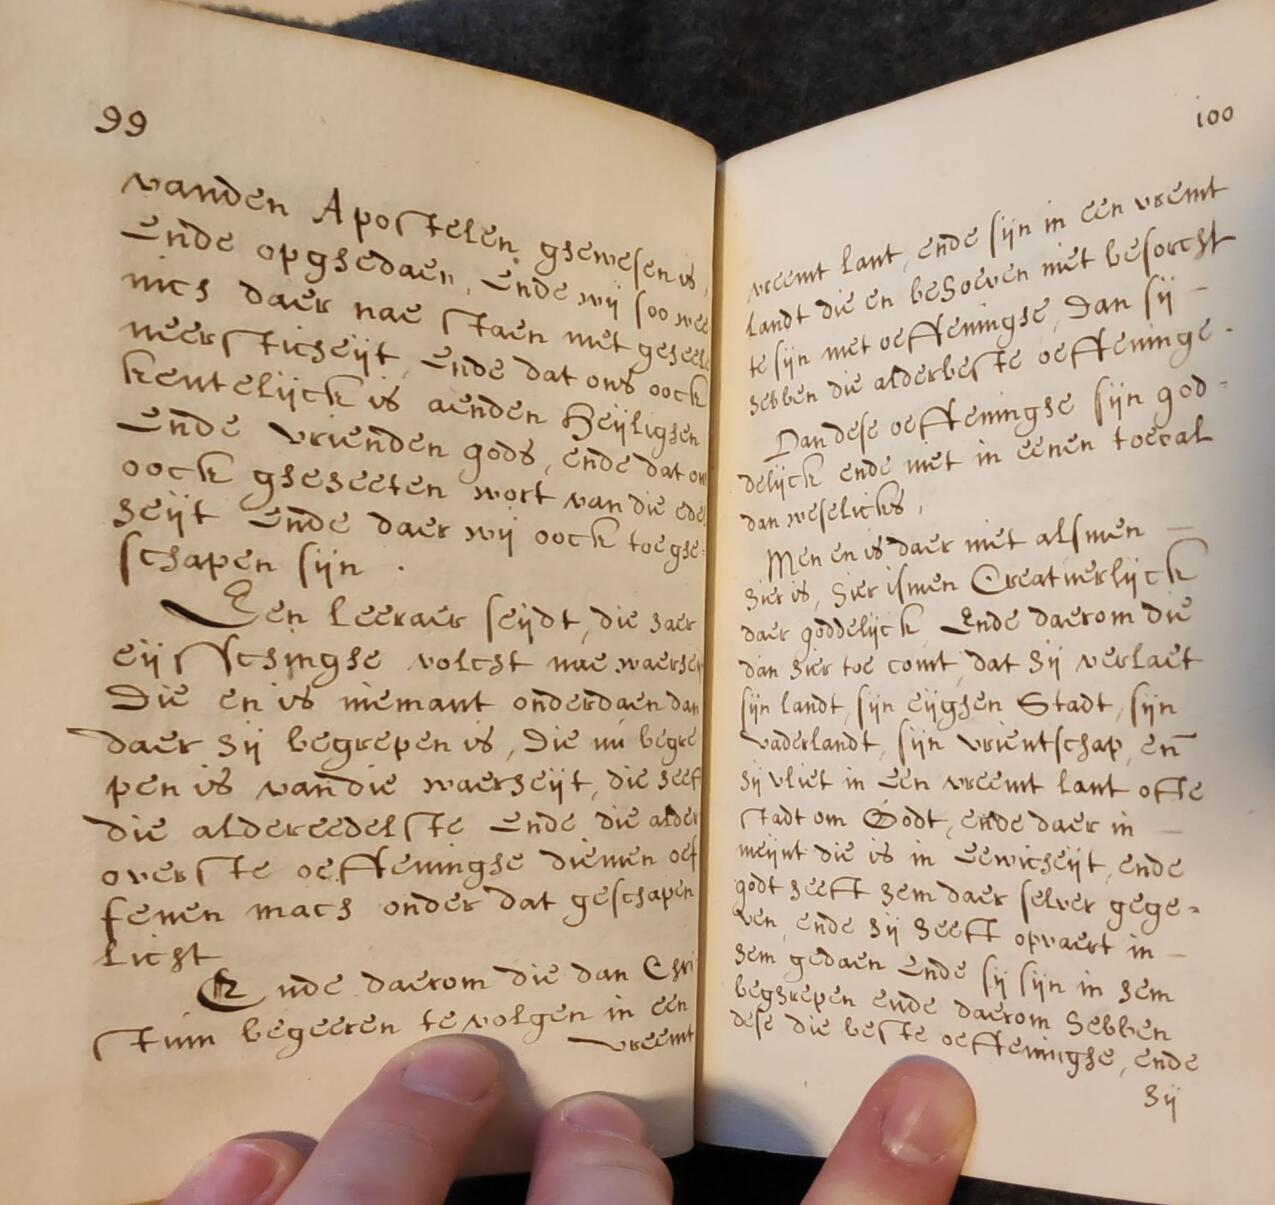 99
vanden Apostelen ghewesen is,
Ende opghedaen, Ende wij soo wee
nich daer nae staen met geheel
neersticheijt, Ende dat ons oock
kentelijck is aenden Heijlighen
Ende vrienden gods, ende dat on
oock gheheeten wort van die edel
heijt Ende daer wij oock toeghe-
schapen sijn.
Een leeraer seijdt, die haer
eijsschinghe volcht nae waerhei
Die en is niemant onderdaen dan
daer hij begrepen is, Die nu begre
pen is vandie waerheijt, die heef
die aldereedelste Ende die alder
overste oeffeninghe diemen oef
fenen mach onder dat geschapen
licht
Ende daerom die dan Chri
stum begeeren te volgen in een
vreemt
100
vreemt lant, ende sijn in een vremt
landt die en behoeven niet besorcht
te sijn met oeffeninghe, Dan sij
hebben die alderbeste oeffeninge.
Dan dese oeffeninghe sijn god-
delijck ende niet in eenen toeval
dan weselicks,
Men en is daer niet alsmen
hier is, hier ismen Creatuerlijck
daer goddelijck Ende daerom die
dan hier toe comt, dat hij verlaet
sijn landt, sijn eijghen Stadt, sijn
vaderlandt, sijn vrientschap, en̄
hij vliet in Een vreemt lant ofte
stadt om Godt, ende daer in
meijnt die is in Eewicheijt, ende
godt heeft hem daer selver gege-
ven, ende hij heeft opvaert in
hem gedaen Ende sij sijn in hem
beghrepen ende daerom hebben
dese die beste oeffeninghe, ende
hij